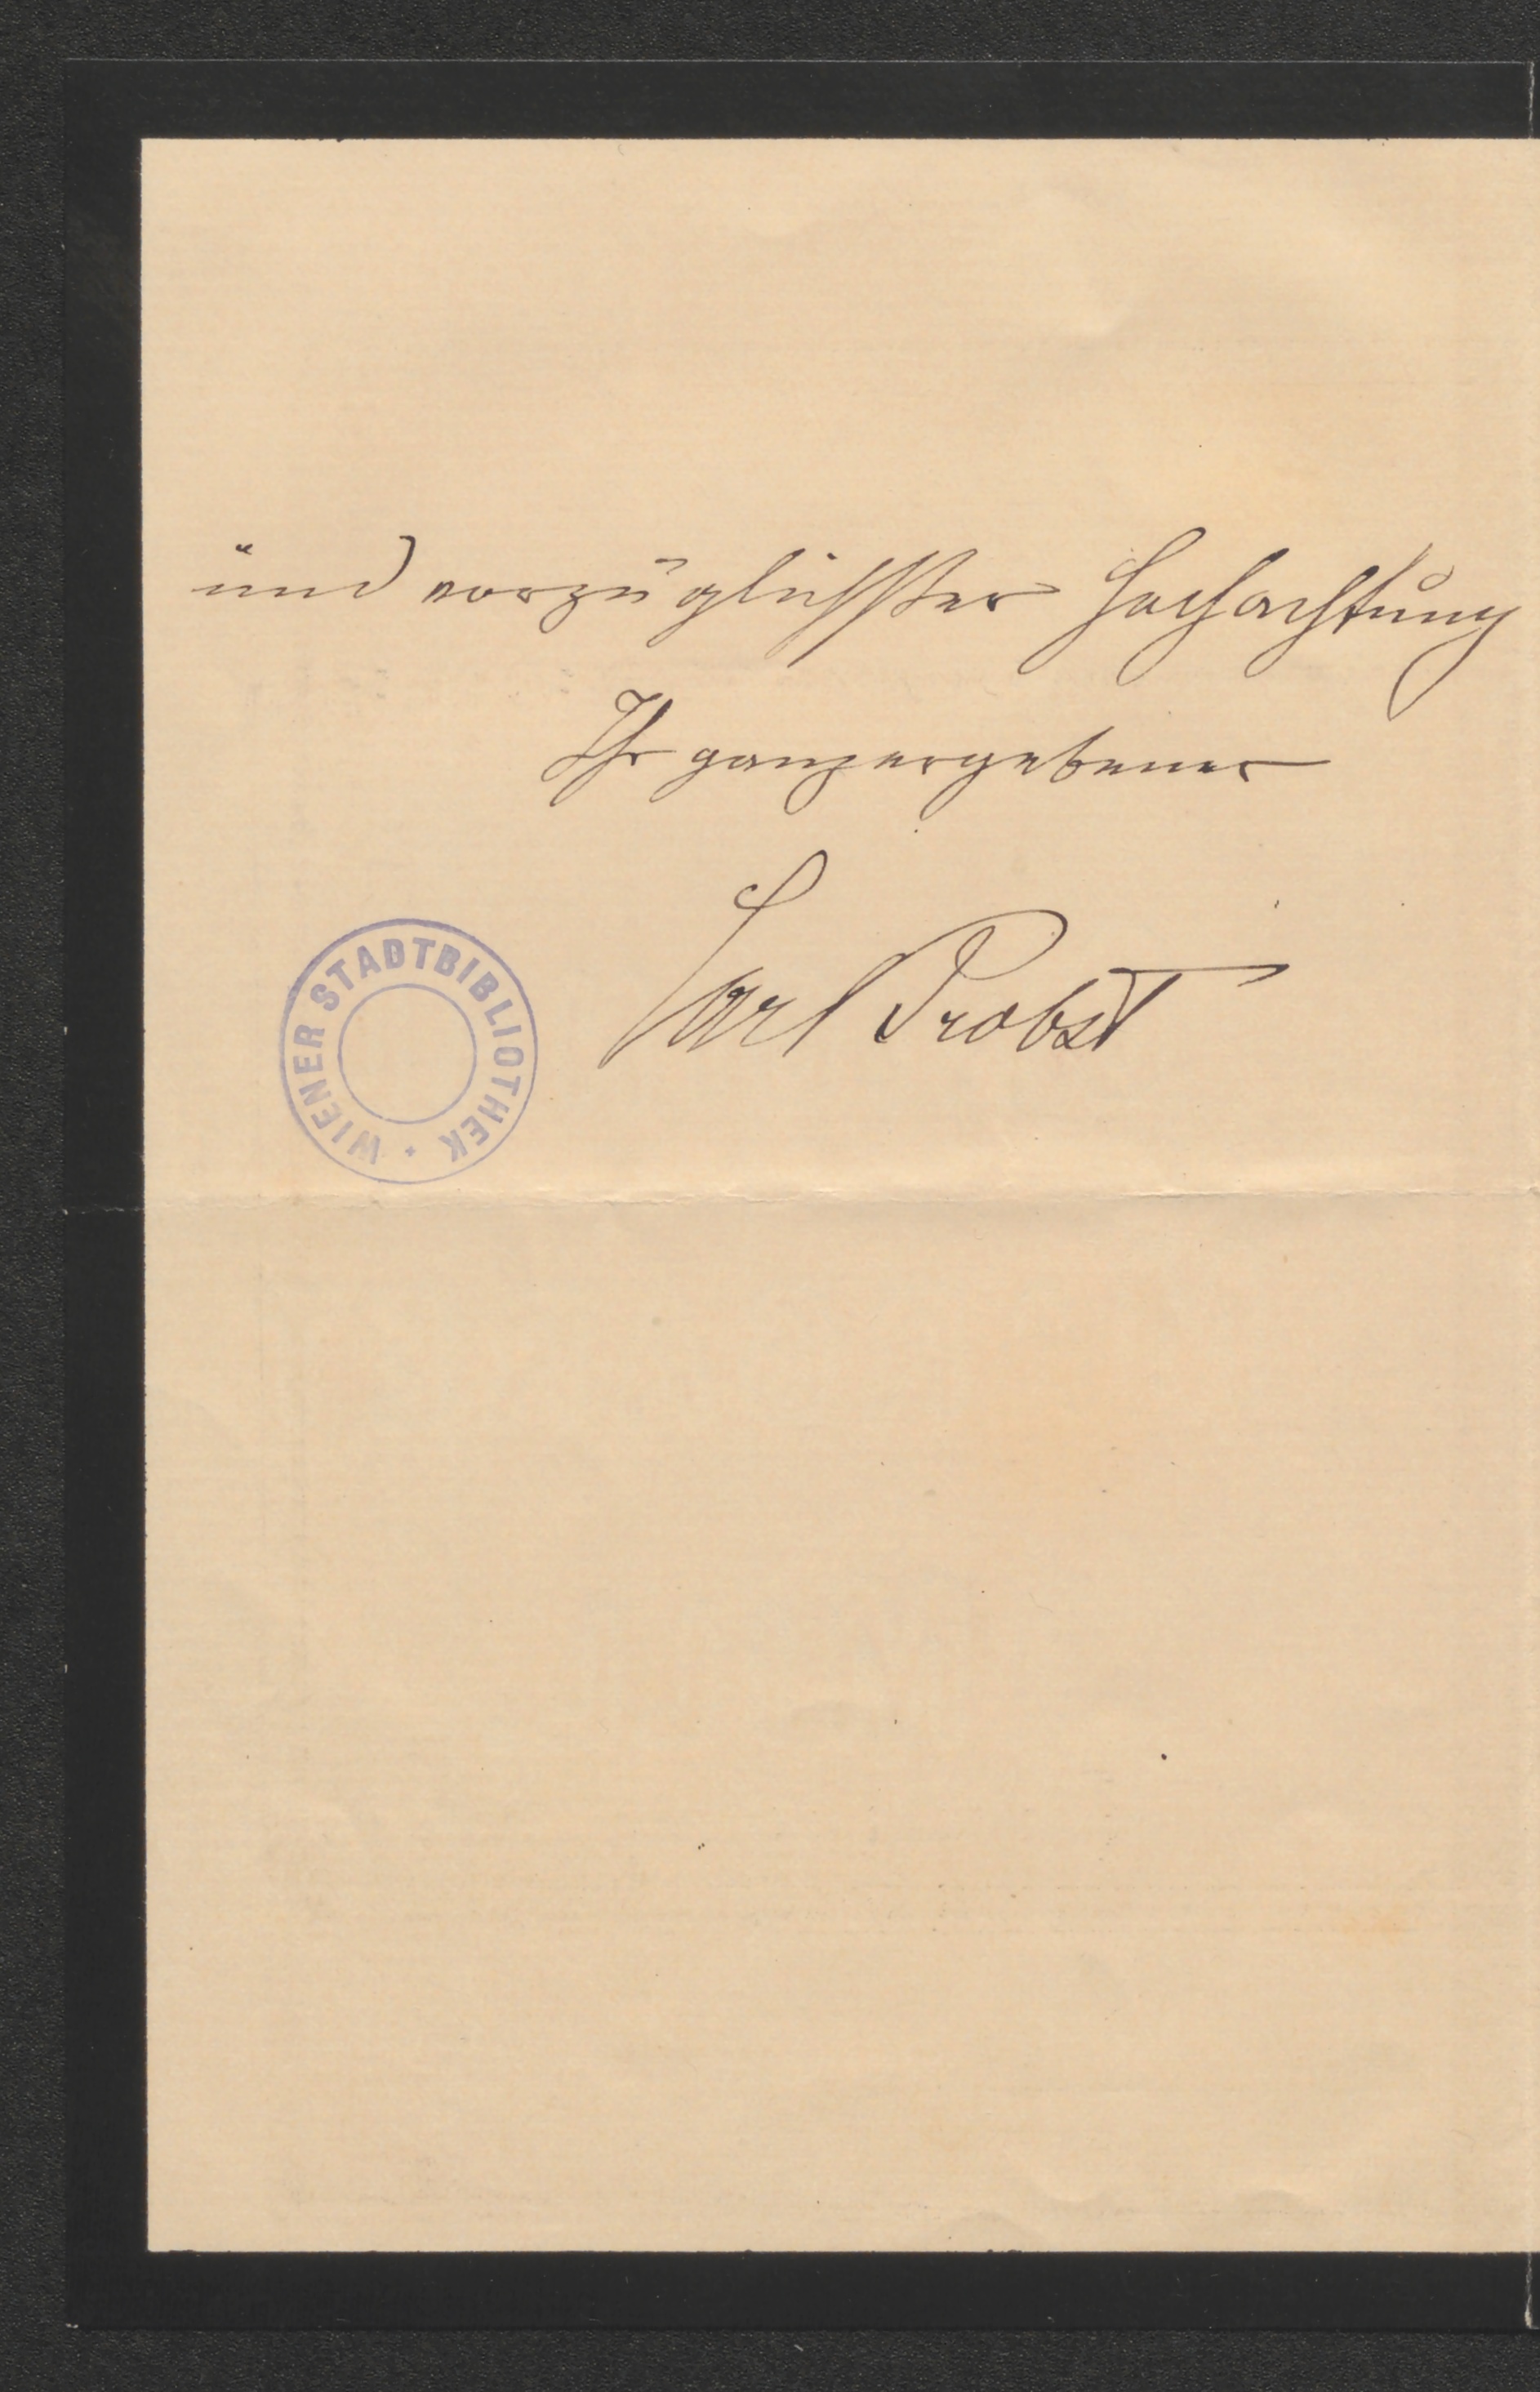 und vorzüglichster Hochachtung
Ihr ganzergebener
Carl Probst
WIENER STADTBIBLIOTHEK